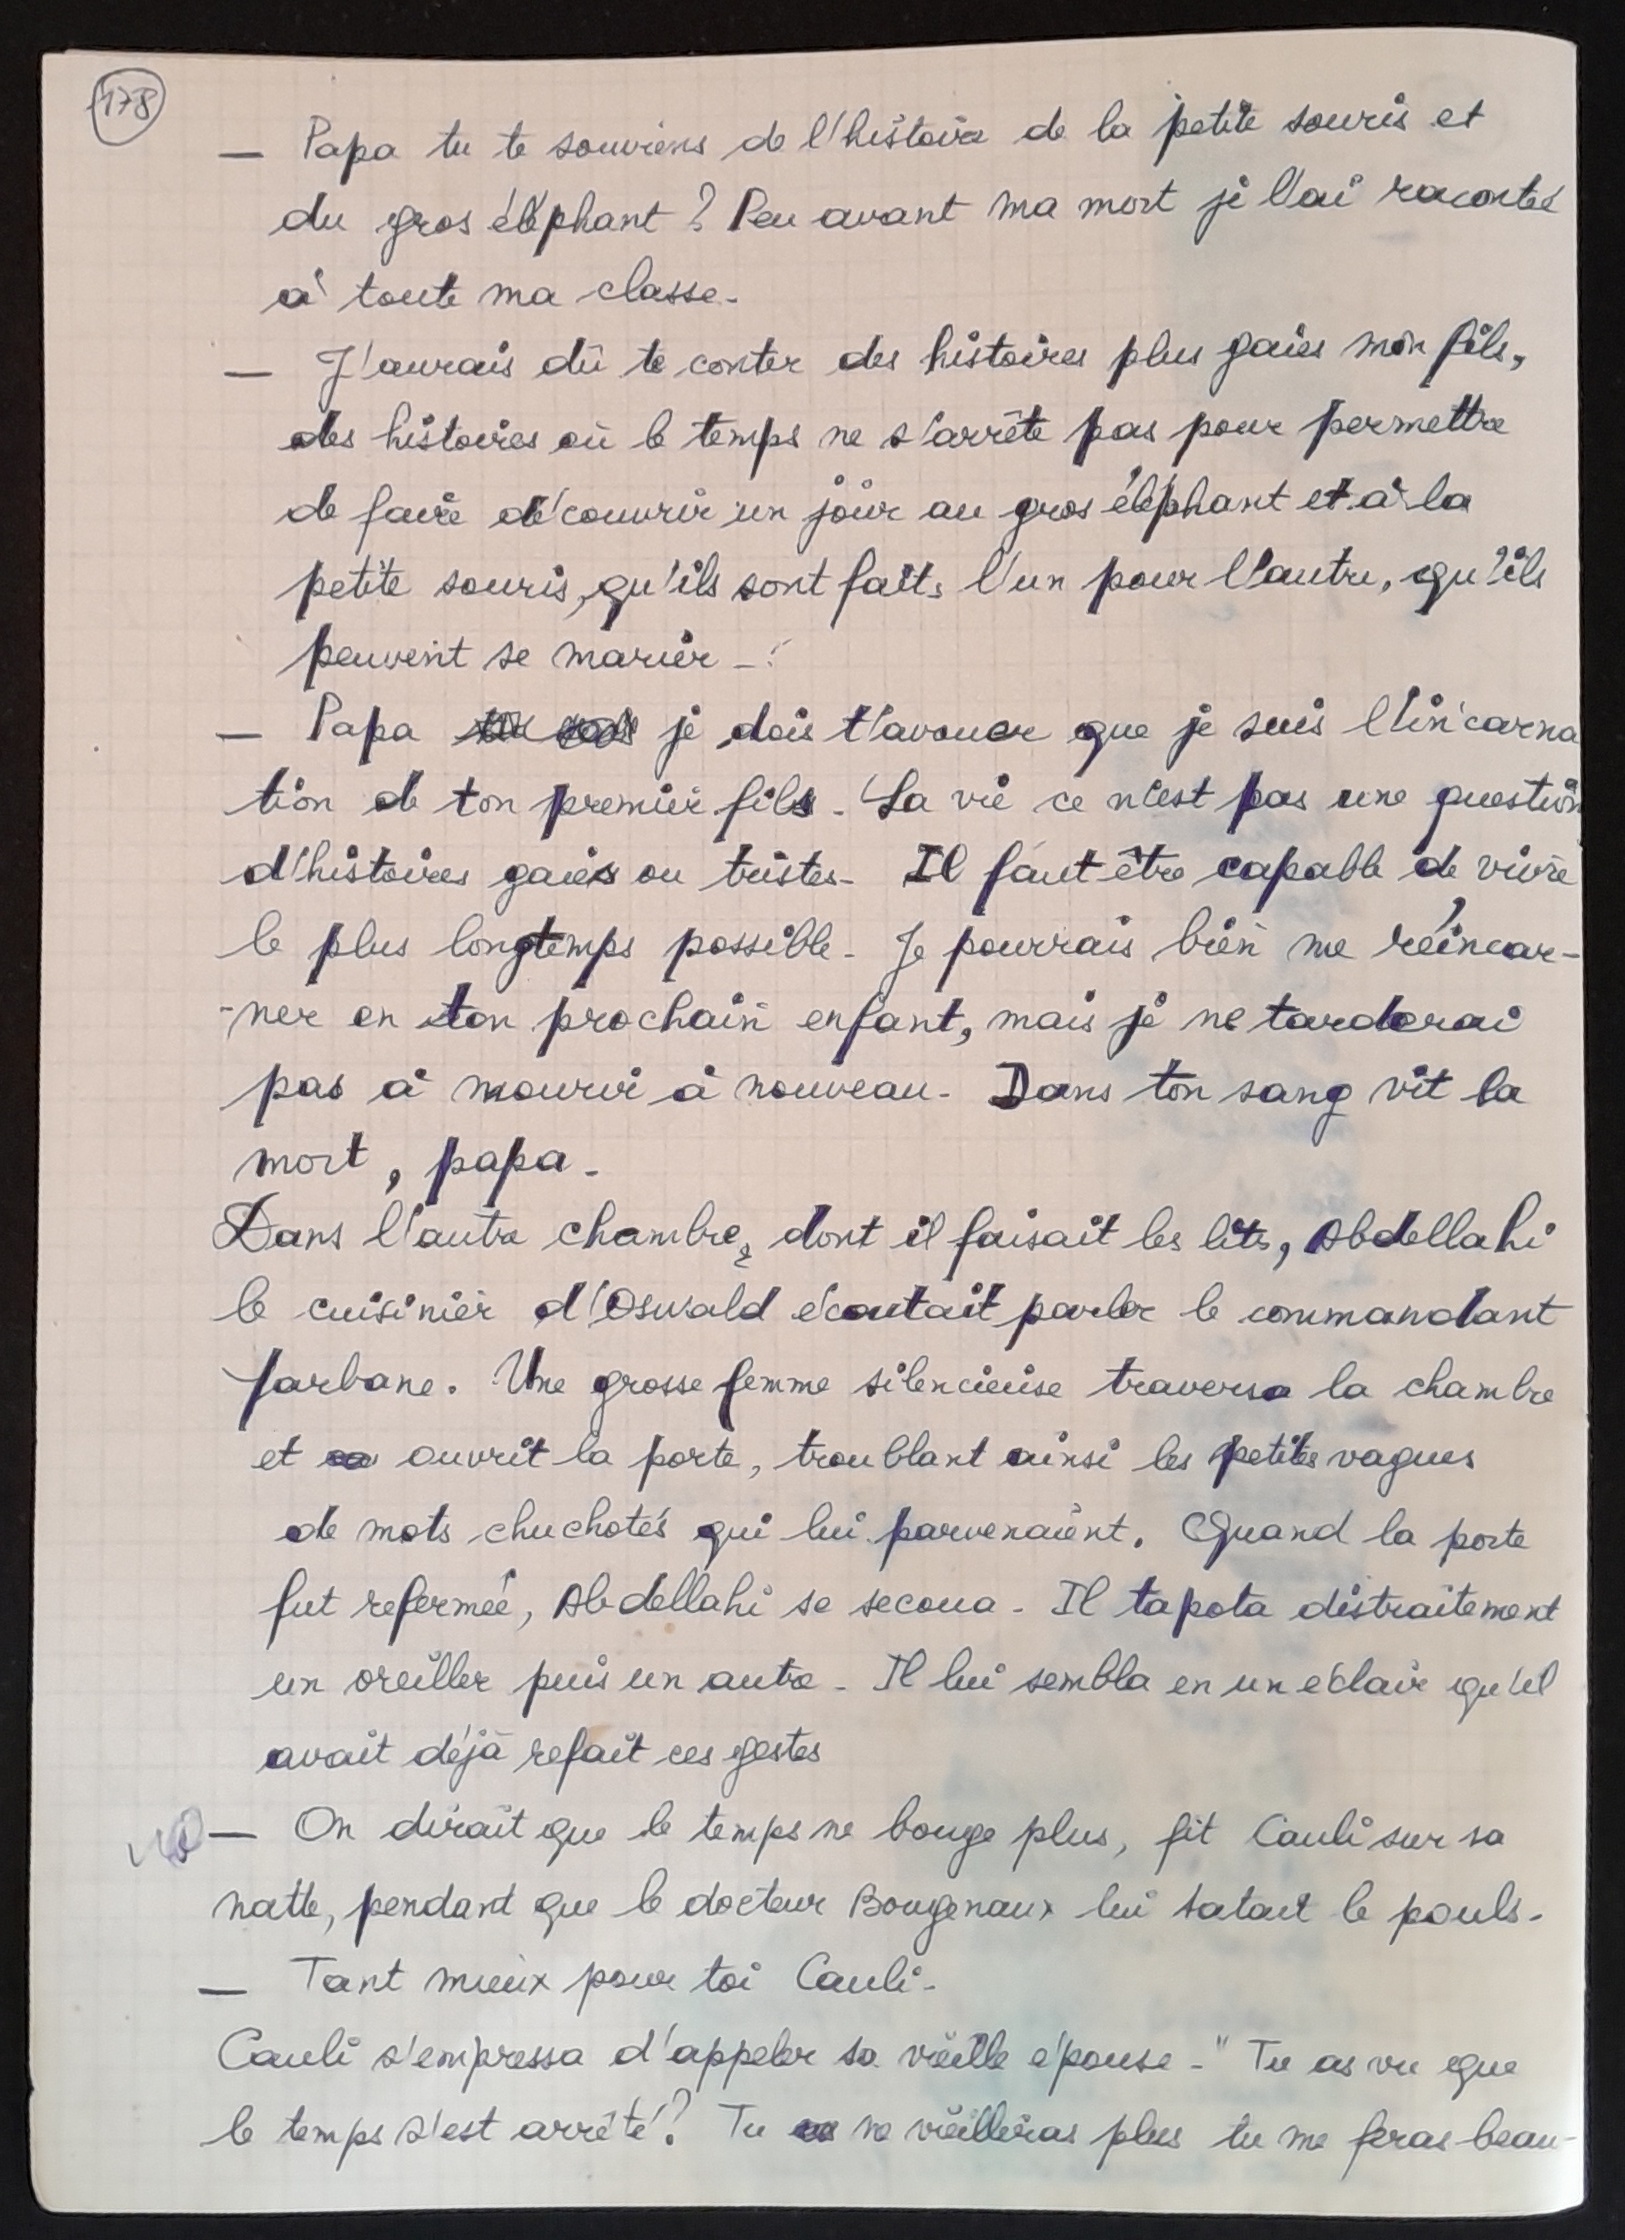 178
— Papa tu te souviens de l'histoire de la petite souris et
du gros éléphant ? Peu avant ma mort je l'ai racontée
à toute ma classe.
— J'aurais dû te conter des histoires plus gaies mon fils,
des histoires où le temps ne s'arrête pas pour permettre
de faire découvrir un jour au gros éléphant et à la
petite souris, qu'ils sont faits l'un pour l'autre, qu'ils
peuvent se marier -
— Papa je dois t'avouer que je suis l'incarna
tion de ton premier fils. La vie ce n'est pas une question
d'histoires gaies ou tristes. Il faut être capable de vivre
le plus longtemps possible. Je pourrais bien me réincar-
-ner en ton prochain enfant, mais je ne tarderai
pas à mourir à nouveau. Dans ton sang vit la
mort, papa.
Dans l'autre chambre, dont il faisait les lits, Abdellahi
le cuisinier d'Oswald écoutait parler le commandant
farbane. Une grosse femme silencieuse traversa la chambre
et ouvrit la porte, troublant ainsi les petites vagues
de mots chuchotés qui lui parvenaient. Quand la porte
fut refermée, Abdellahi se secoua. Il tapota distraitement
un oreiller puis un autre. Il lui sembla en un éclair qu'il
avait déjà refait ces gestes
— On dirait que le temps ne bouge plus, fit Cauli sur sa
natte, pendant que le docteur Bougenaux lui tatait le pouls.
— Tant mieux pour toi Cauli.
Cauli s'empressa d'appeler sa vieille épouse. " Tu as vu que
le temps s'est arrêté ? Tu ne vieilliras plus tu me feras beau-